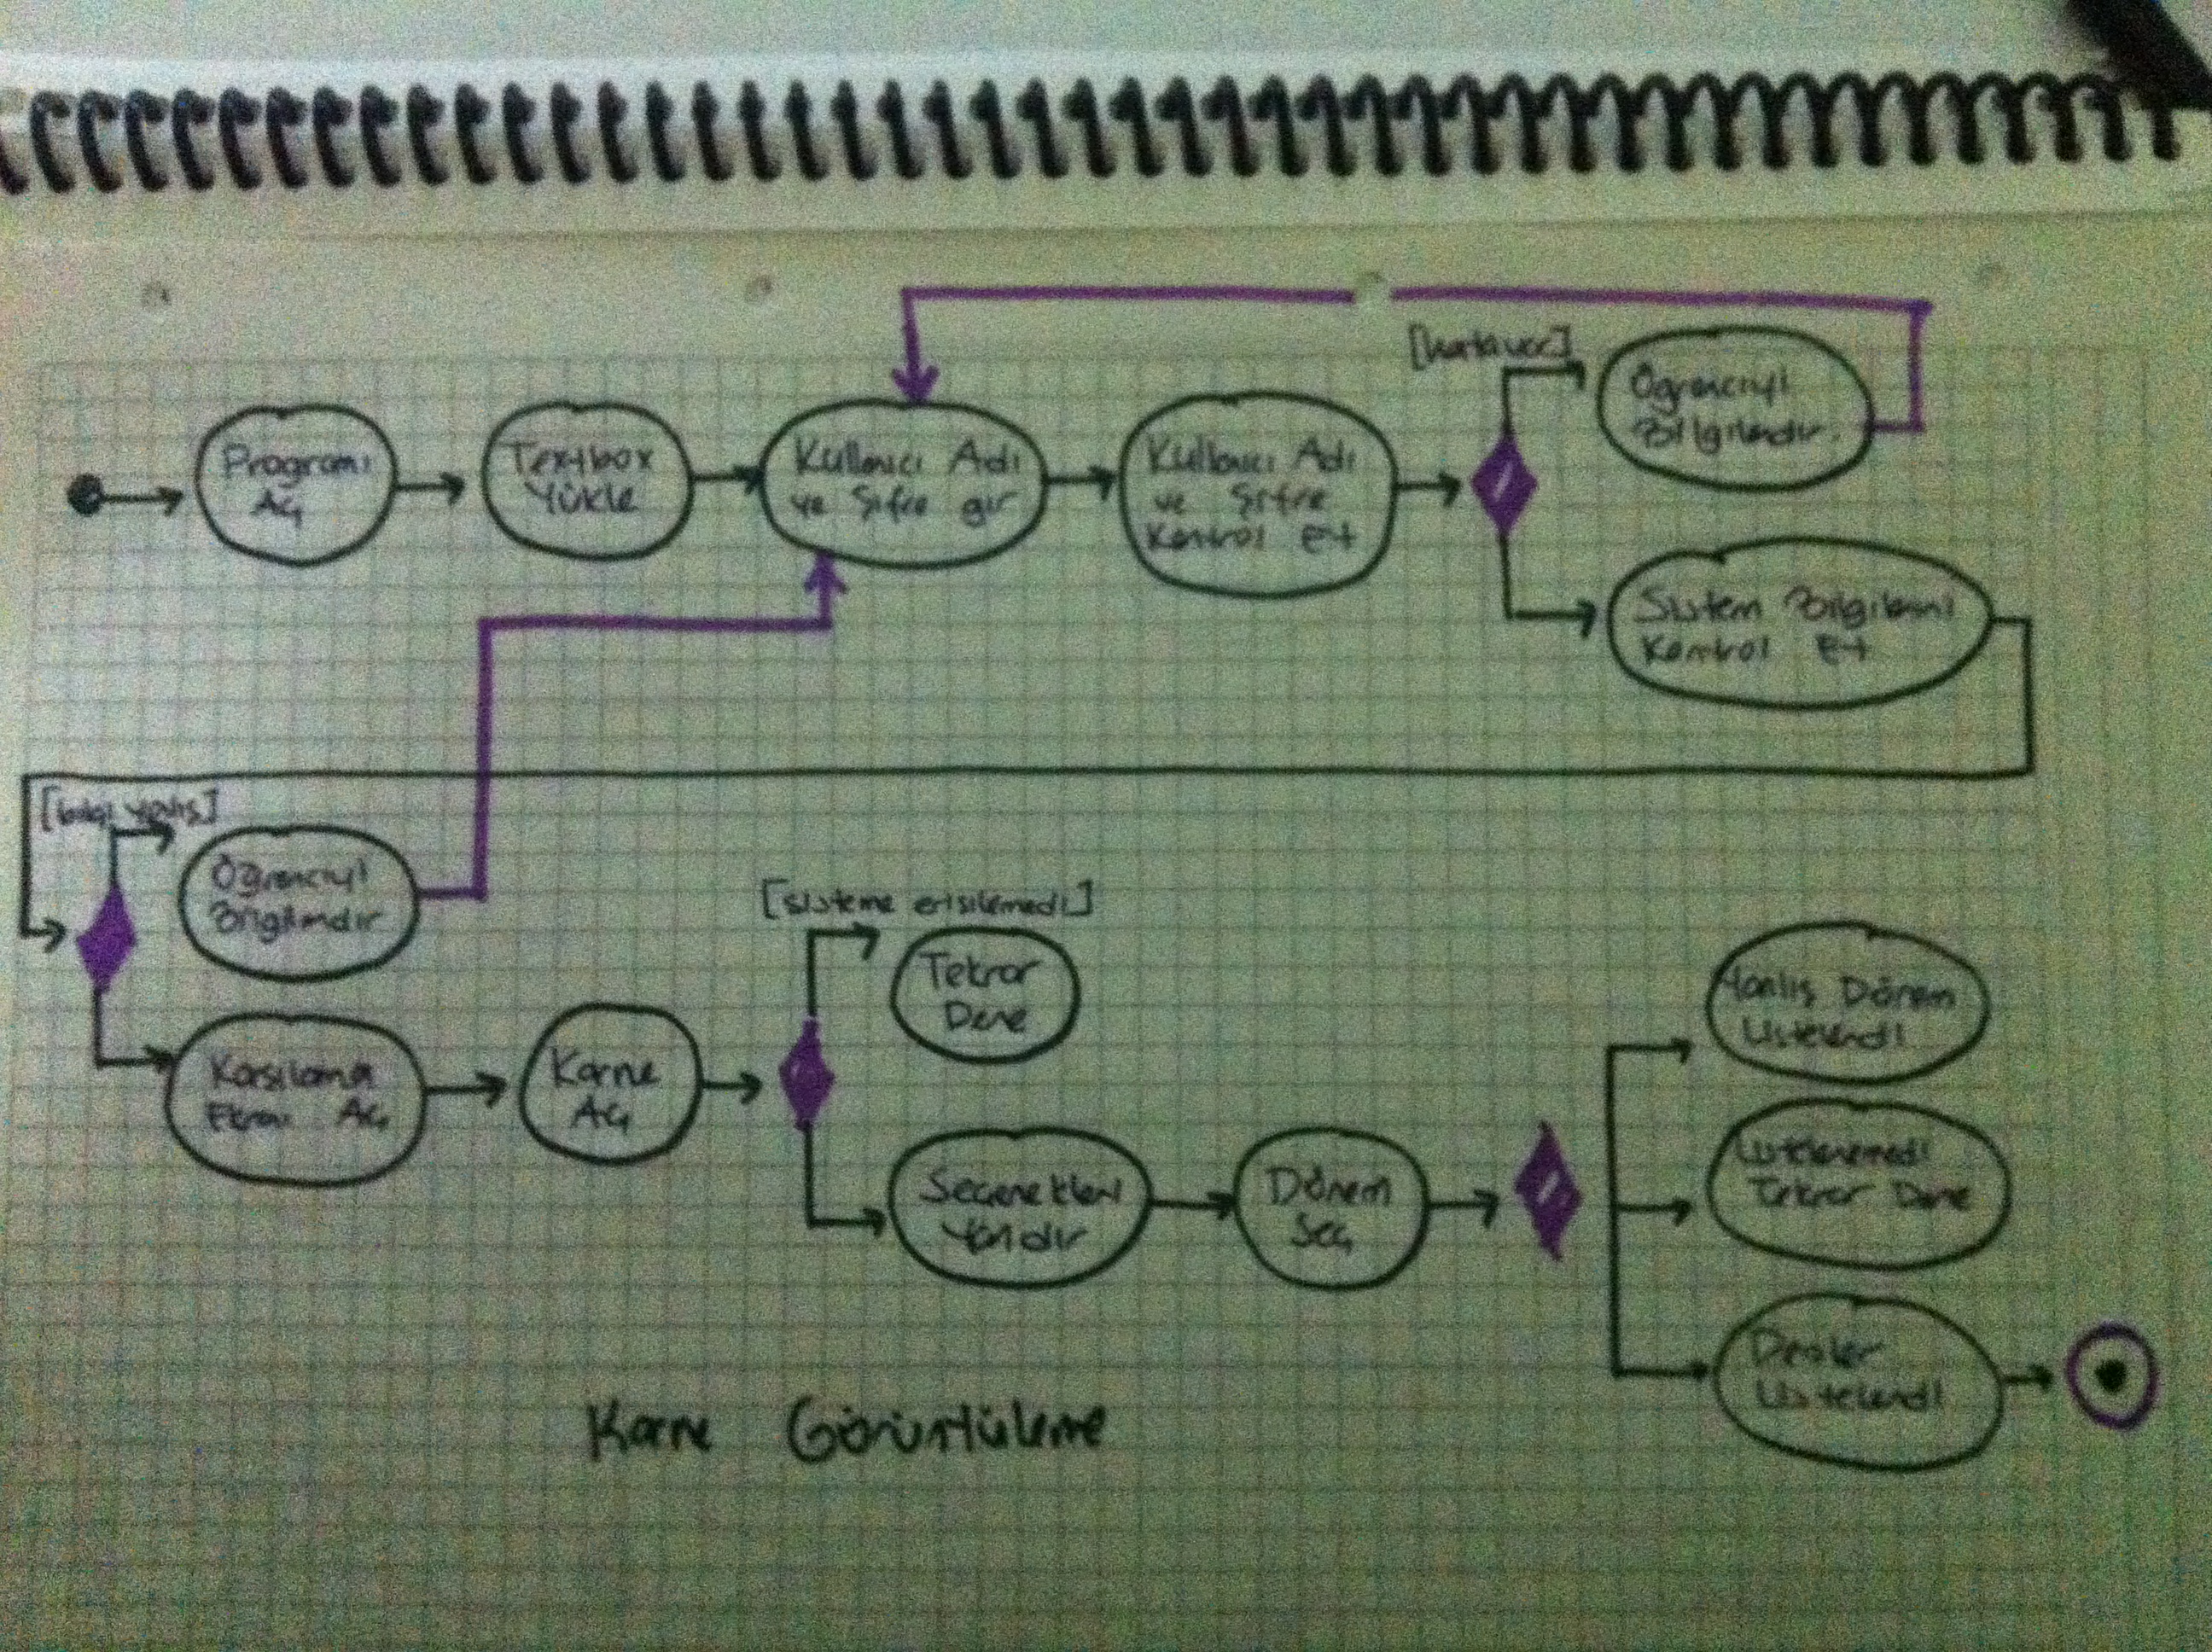 [hata var]
Programı
Aç
Textbox
Yükle
Kullanıcı Adı
ve Şifre gir
Kullanıcı Adı
ve Şifre
Kontrol Et
Öğrenciyi
Bilgilendir.
Sistem Bilgilerini
Kontrol Et
[bilgi yanlış]
Öğrenciyi
Bilgilendir
Karşılama
Ekranı Aç
Karne
Aç
[sisteme erisilemedi]
Tekrar
Dene
Seçenekleri
Yandır
Dönem
Seç
Yanlış Dönem
Listelendi
Listelenemedi
Tekrar Dene
Dersler
Listelendi
Karne Görüntüleme